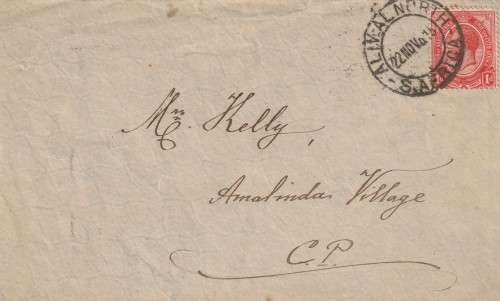 ALIWAL NORTH
22 NOV
S. AFRICA
Mrs Kelly,
Amalinda Village
C.P.